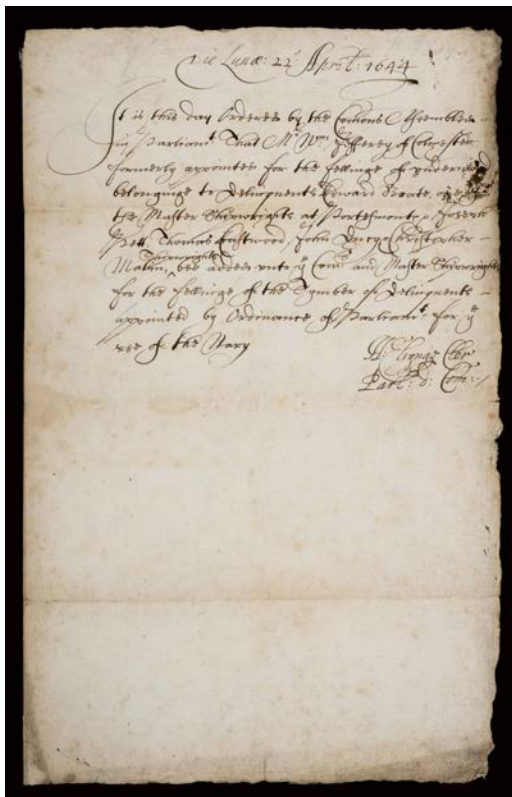 Die Lunæ: 22° Aprill: 1644
It is this day Ordered by the Comons Assembled
in Parliamt That Mr Wm Jefferey of
formerly appointed for the fellinge of
belonginge to Delinquents Edward Boate, one of
the Master Shipwrights at Portsmouth, Joseph
Pett, Thomas Eastwood, John Christopher
Shipwrights
Malin, bee added unto ye Comrs and Master Shipwrights
for the fellinge of the Tymber of Delinquents
appointed by Ordinance of Parliamt for ye
use of the Navy
H: Elsynge Cler
Parl: D: Com: